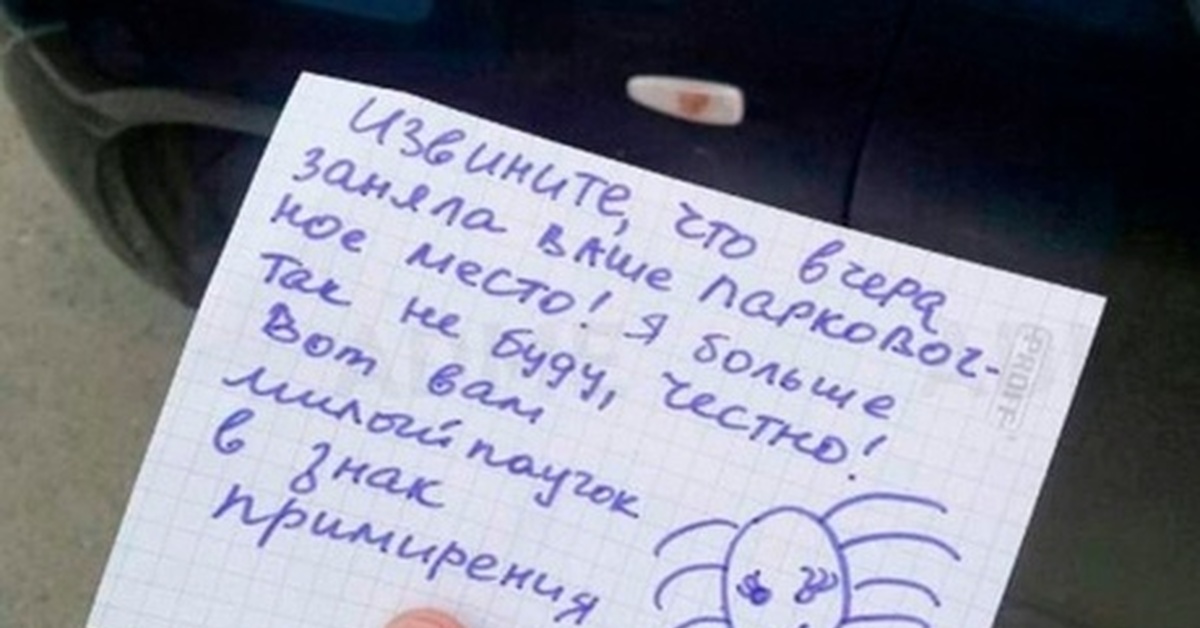 Извините, что вчера
заняла ваше парковоч-
ное место! Я больше
так не буду, честно!
Вот вам
милый паучок
в знак
примирения
PROFF